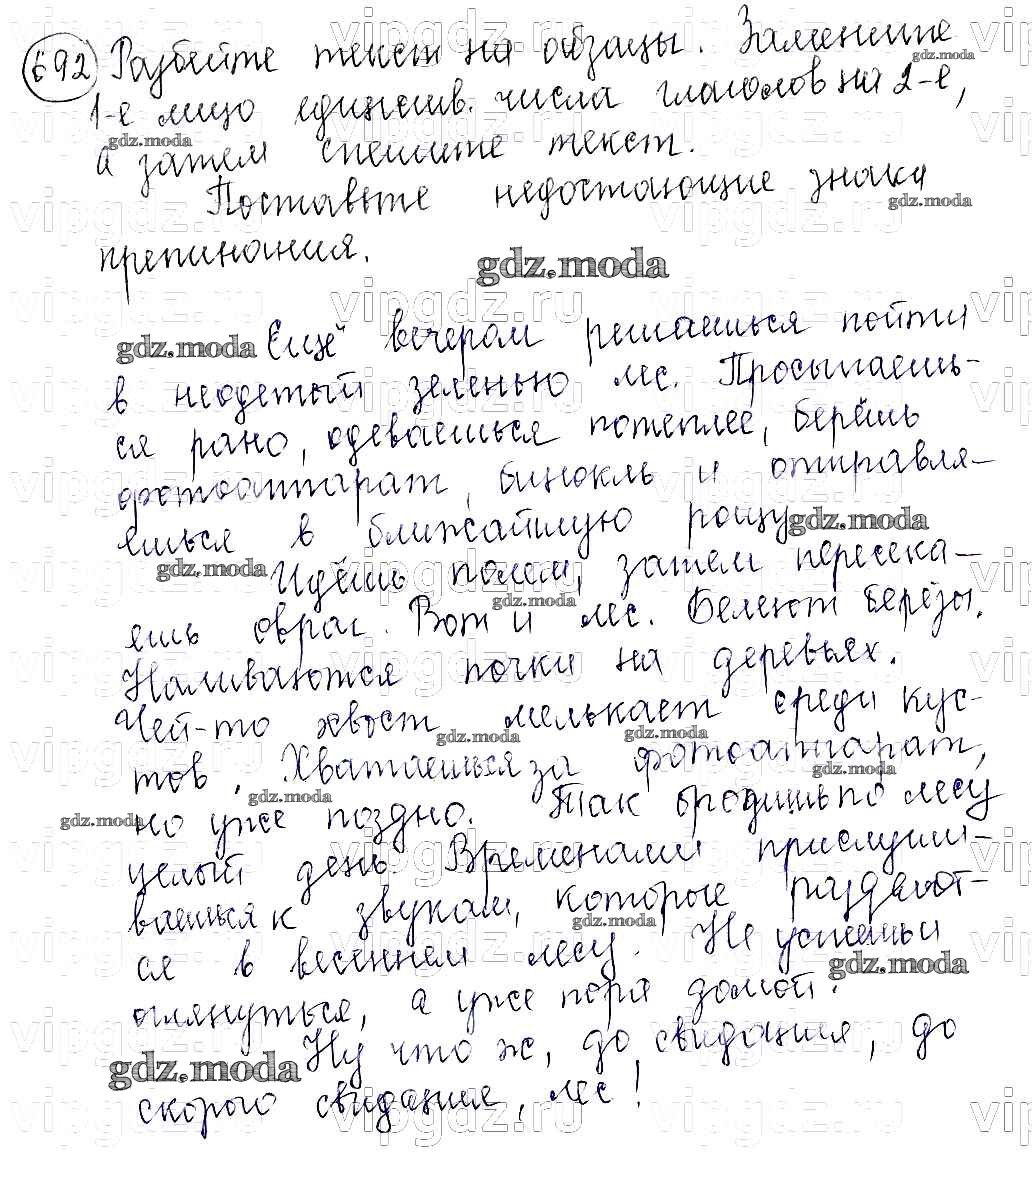 692 Разбейте текст на абзацы. Замените
1-е лицо единствв. числа глаголов на 2-е,
а затем спешите текст.
Поставьте недостающие знаки
препинания.
gdz.moda
Ещё вечером решаешься пойти
в неодетый зеленью лес. Просыпаешь-
ся рано, одеваешься потеплее, берёшь
фотоаппарат, бинокль и отправля-
ешься в ближайшую рощу
Идёшь полем, затем пересека-
ешь овраг. Вот и лес. Белеют берёзы.
Наливаются почки на деревьях.
Чей-то хвост мелькает среди кус-
тов. Хватаешься за фотоаппарат,
но уже поздно. Так бродишь по лесу
целый день. Временами прислуши-
ваешься к звукам, которые раздают-
ся в весеннем лесу. Не успеешь и
оглянуться, а уже пора домой.
Ну что ж, до свидания, до
скорого свидания, лес!